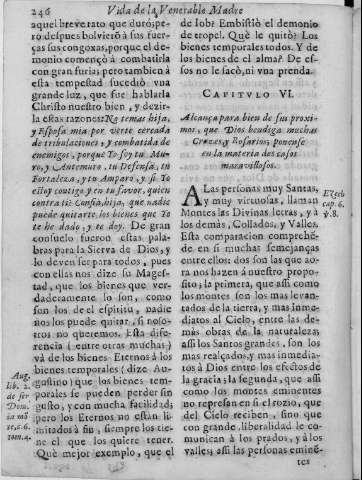 246 Vida de la Venerable Madre
aquel breve rato que duró; pe-
ro despues bolvierō à sus fuer-
ças sus congoxas, porque el de-
monio començò à combatirla
con gran furia; pero tambien à
esta tempestad sucediò vna
grande luz, que fue hablarla
Christo nuestro bien, y dezir-
la estas razones: No temas hija,
y Esposa mia por verte cercada
de tribulaciones, y combatida de
enemigos, porque Yo soy tu Mu-
ro, y Antemuro, tu Defensa, tu
Fortaleza, y tu Amparo, y si Yo
estoy contigo y en tu favor, quien
contra ti? Confia, hija, que nadie
puede quitarte los bienes que Yo
te he dado, y te doy. De gran
consuelo fueron estas pala-
bras para la Sierva de Dios, y
lo deven ser para todos, pues
con ellas nos dize su Mages-
tad, que los bienes que ver-
daderamente lo son, como
son los de el espiritu, nadie
nos los puede quitar, si noso-
tros no queremos. Esta dife-
rencia (entre otras muchas)
và de los bienes Eternos à los
bienes temporales (dize Au-
gustino) que los bienes tem-
porales se pueden perder sin
gusto, y con mucha facilidad;
pero los Eternos no estàn li-
mitados à fin, siempre los tie-
ne el que los quiere tener.
Què mejor exemplo, que el
Aug.
lib. 2.
de ser.
Dom.
tom. 4.
de Iob? Embistiò el demonio
de tropel. Què le quitò? Los
bienes temporales todos. Y de
los bienes de el alma? De es-
sos no le sacò, ni vna prenda.
CAPITVLO VI.
Alcança para bien de sus proxi-
mos, que Dios bendiga muchas
Cruzes, y Rosarios; ponense
en la materia dos casos
maravillosos.
A Las personas muy Santas,
y muy virtuosas, llaman
Montes las Divinas letras, y à
los demàs, Collados, y Valles.
Esta comparacion compreh̃ē-
de en si muchas semejanças
entre ellos: dos son las que ao-
ra nos hazen à nuestro propo-
sito; la primera, que assi como
los montes son los mas levan-
tados de la tierra, y mas inme-
diatos al Cielo, entre las de-
màs obras de la naturaleza;
assi los Santos grandes, son los
mas realçados, y mas inmedia-
tos à Dios entre los efectos de
la gracia; la segunda, que assi
como los montes eminentes
no represan en si el rozio, que
del Cielo reciben, sino que
con grande liberalidad le co-
munican à los prados, y à los
valles; assi las personas eminē-
tes
Ezech
cap. 6.
℣. 8.